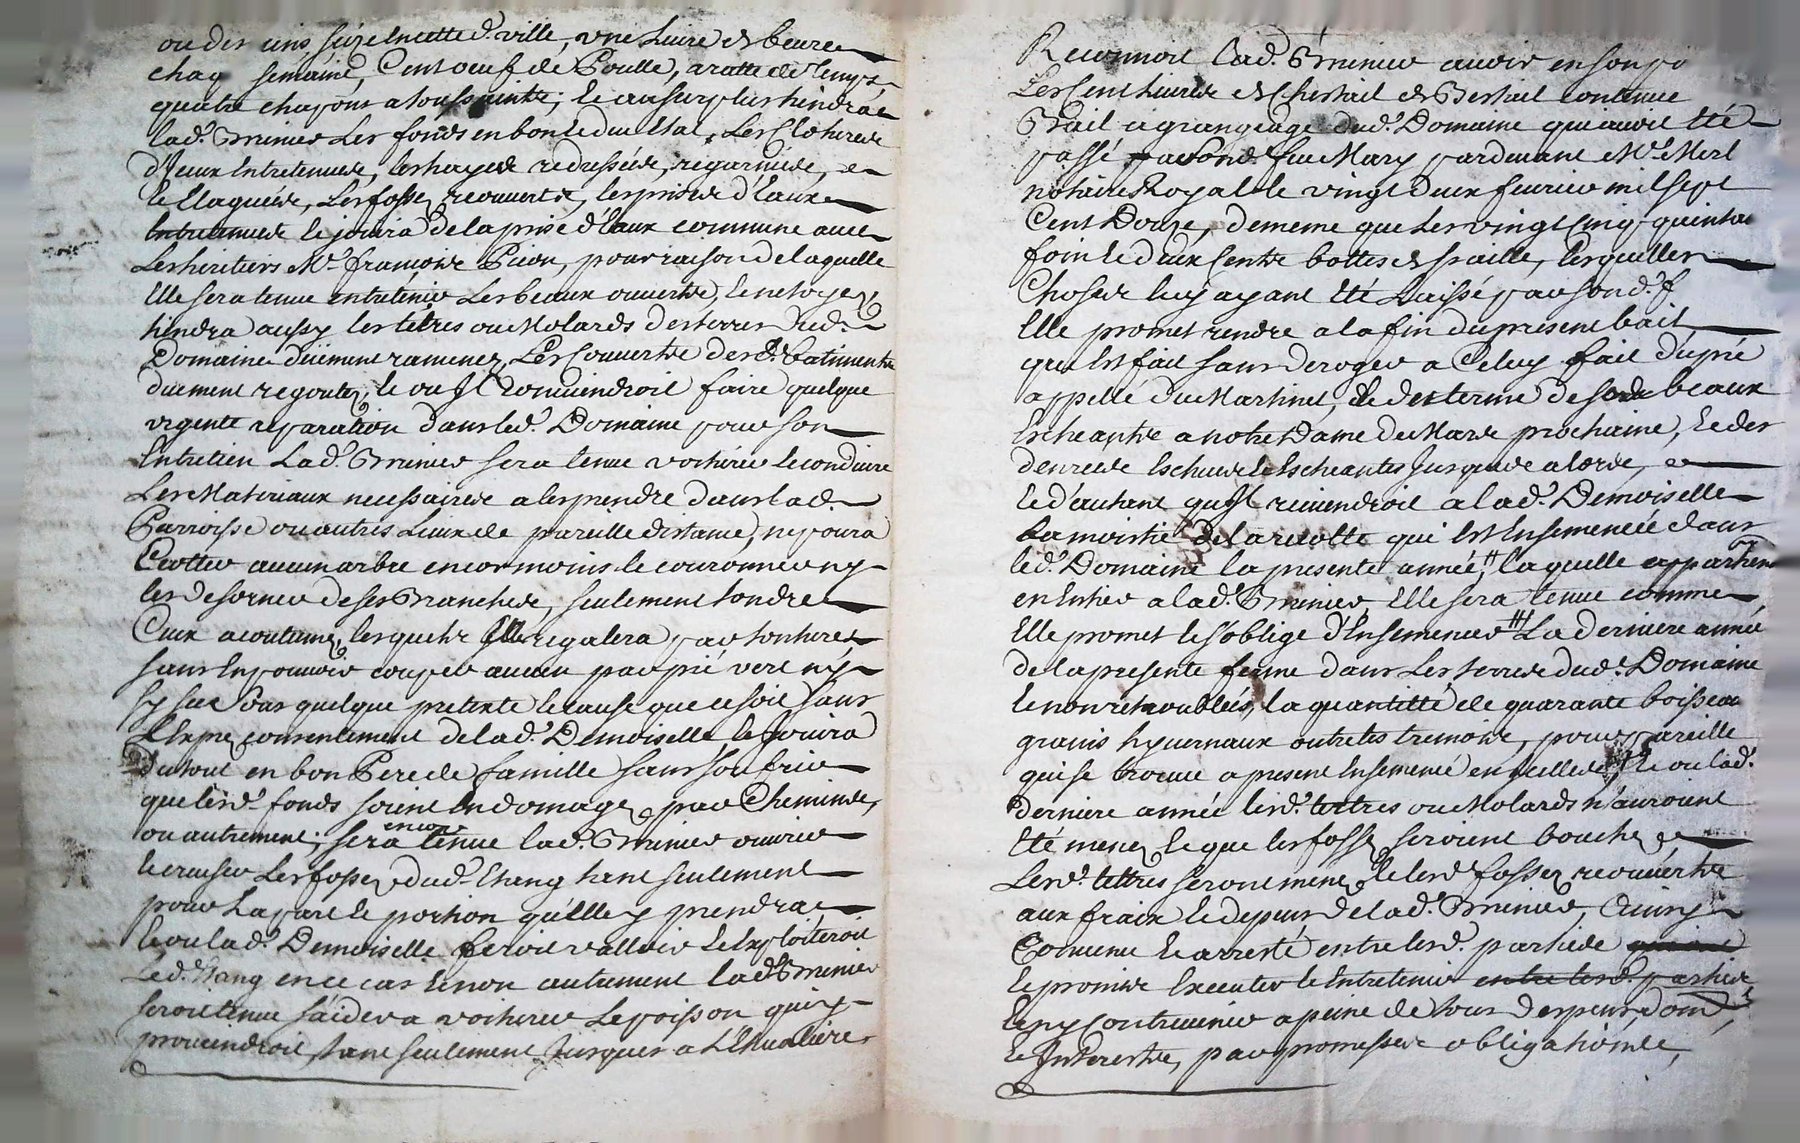 ou des cens, seize en cette d. ville, une Livre de beure
chaq semaine, Cent oeuf de Poulle, a ratte de temps
quatre chapons a toussaintz; et au surplus tiendra
lad.e Brunier Les fonds en bon et due Etat, Les Clotures
d'Iceux Entretenues, les hayes redressées, regarnies, et
Les fossez reouverts, les prises d'Eaux
Entretenues et jouira de la prise d'Eaux commune avec
Les heritiers Mr. francoise Pieon, pour raison de laquelle
Elle sera tenue entretenir Les beaux ouverts, et netoyez
tiendra aussy les tettres ou Molards des terres dud.
Domaine düement ramenez, Les Couverts desd. batiments
düement regoutez; et ou Il conviendroit faire quelque
urgente reparation dans led. Domaine pour son
Entretien Lad.e Brunier sera tenue voiturer et conduire
Les Materiaux necessaires a les prendre dans lad.
Parroisse ou autres Lieux de pareille distance, ne poura
aucun arbre encor moins le couronner ny
les de ses Branches, seulement tondre
Ceux acoutumez, lesquels Elle regalera par tontures
sans En pouvoir couper aucun par pié vert ny
sec sous quelque pretexte et cause que ce soit sans
L'Expres consentement de lad.e Demoiselle, et Jouira
du tout en bon Pere de famille sans soufrir
que lesd. fonds soient Endomagez par Chemins,
ou autrement; sera encor tenue lad.e Brunier ouvrir
et creuser Les fossez dud. Etang tant seulement
pour La part et portion qu'Elle y prendra
et ou lad.e Demoiselle feroit valloir et Exploiteroit
Led. Etang en ce cas et non autrement lad.e Brunier
seroit tenue s'aider a voiturer Le poisson qui y
proviendroit, tant seulement Jusques a
Reconnoit Lad.e Brunier avoir en son po
Les Cent Livres de Chestail de Bestail contenue
Bail a grangeage dud. Domaine qui avoit Eté
passé par son d. feu Mary pardevant Mr. Merl
notaire Royal le vingt deux fevrier mil sept
Cent Douze, de meme que Les vingt Cinq quintau
foin et deux Cents bottes de paille, lesquelles
Choses luy ayant Eté Laissé par son d. f
Elle promet rendre a la fin du present bail
qui Est fait sans deroger a Celuy fait du pré
appellé du Martinet, et des termes de beaux
Escheants a notre Dame de Mars prochaine, et des
denrées Eschues et Escheantes Jusques alors, et
et d'autant qu'Il reviendroit a lad.e Demoiselle
La moitié de la recolte qui Est Ensemencée dans
led. Domaine la presente année, laquelle appartien
en Entier a lad.e Brunier, Elle sera tenue comme
Elle promet et s'oblige d'Ensemencer La derniere année
de la presente ferme dans Les terres dud. Domaine
et non retroublés, la quantité de quarante boisseau
grains hyvernaux outre les tremois, pour pareille
qui se trouve a present Ensemencé en icelles, Et ou lad.
derniere année lesd. tettres ou Molards n'auroient
Eté menez et que les fossez seroient bouchez
Lesd. tettres seront menez et lesd. fossez reouverts
aux fraix et depens de lad.e Brunier, Ainsy
Convenu et arresté entre lesd. parties
et promis Executer et Entretenir entre lesd. parties
et n'y Contrevenir a peine de tous Despens, dom.
et Interests, par promesses obligations,